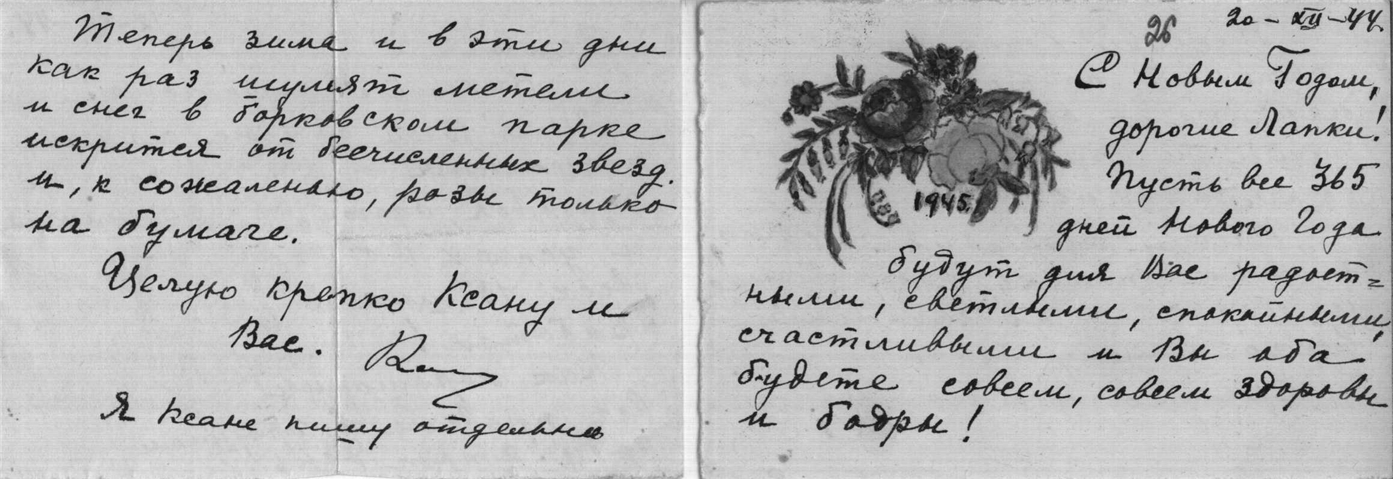 Теперь зима и в эти дни
как раз шумят метели
и снег в борковском парке
искрится от бесчисленных звезд.
и, к сожаленью, розы только
на бумаге.
Целую крепко Ксану и
Вас.
Я Ксане пишу отдельно
26
20-XII-44.
С Новым Годом,
дорогие Лапки!
Пусть все 365
дней Нового Года
1945.
будут для Вас радост=
ными, светлыми, спокойными,
счастливыми и Вы оба
будете совсем, совсем здоровы
и бодры!